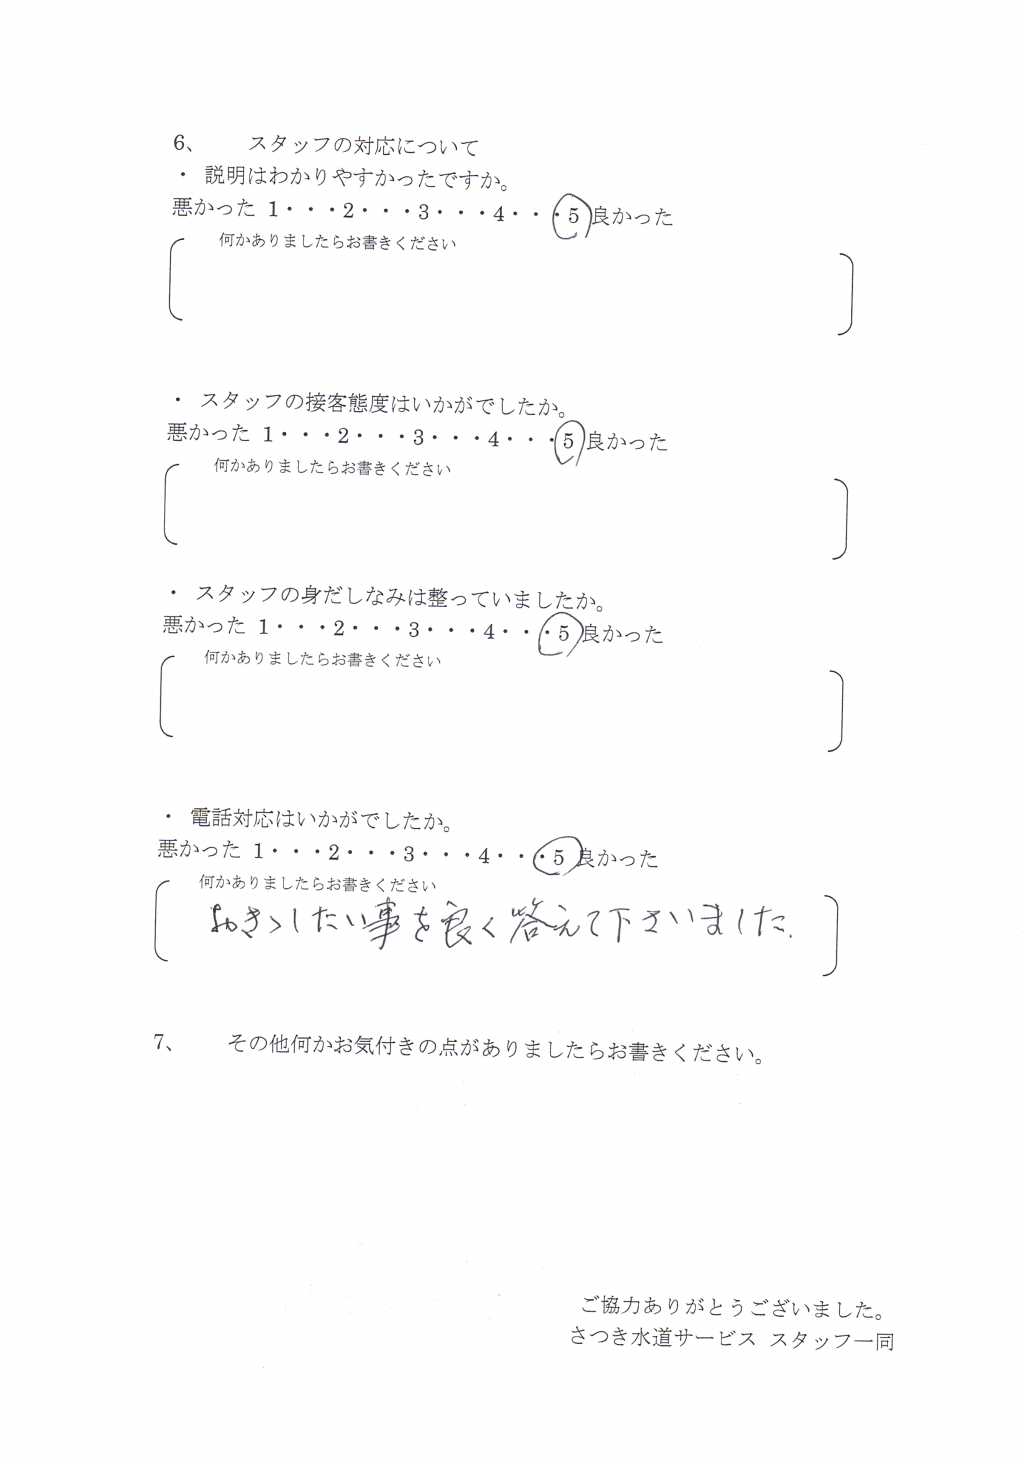 6、　スタッフの対応について
・ 説明はわかりやすかったですか。
悪かった 1・・・2・・・3・・・4・・・5 良かった
何かありましたらお書きください
・ スタッフの接客態度はいかがでしたか。
悪かった 1・・・2・・・3・・・4・・・5 良かった
何かありましたらお書きください
・ スタッフの身だしなみは整っていましたか。
悪かった 1・・・2・・・3・・・4・・・5 良かった
何かありましたらお書きください
・ 電話対応はいかがでしたか。
悪かった 1・・・2・・・3・・・4・・・5 良かった
何かありましたらお書きください
したい事を良く答えて下さいました.
7、　その他何かお気付きの点がありましたらお書きください。
ご協力ありがとうございました。
さつき水道サービス スタッフ一同